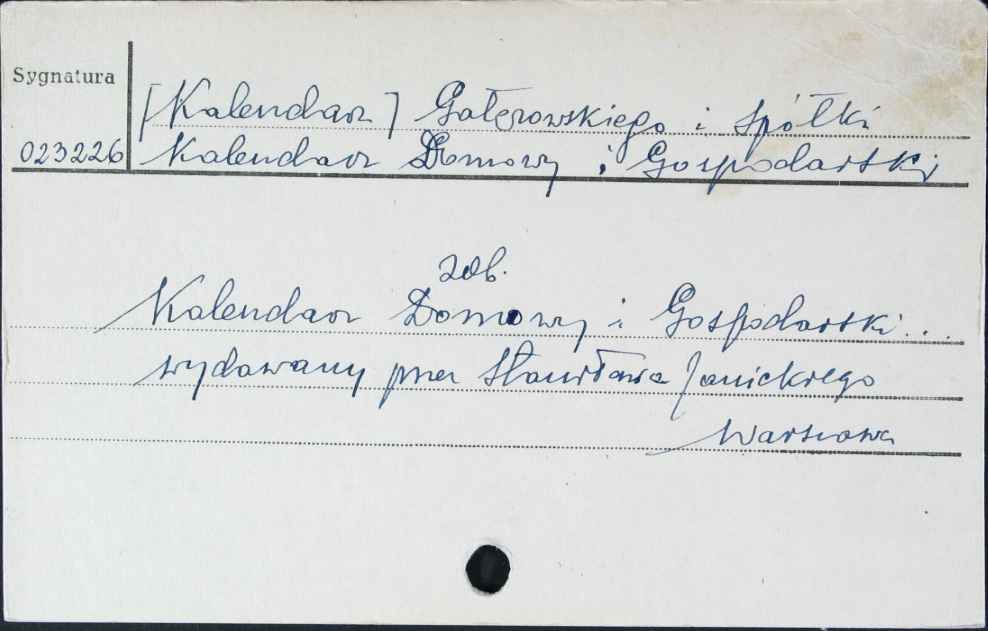 Sygnatura
[Kalendarz] Gałęzowskiego i Spółki
023226 Kalendarz Domowy i Gospodarski
zob.
Kalendarz Domowy i Gospodarski...
wydawany przez Stanisława Janickiego
Warszawa